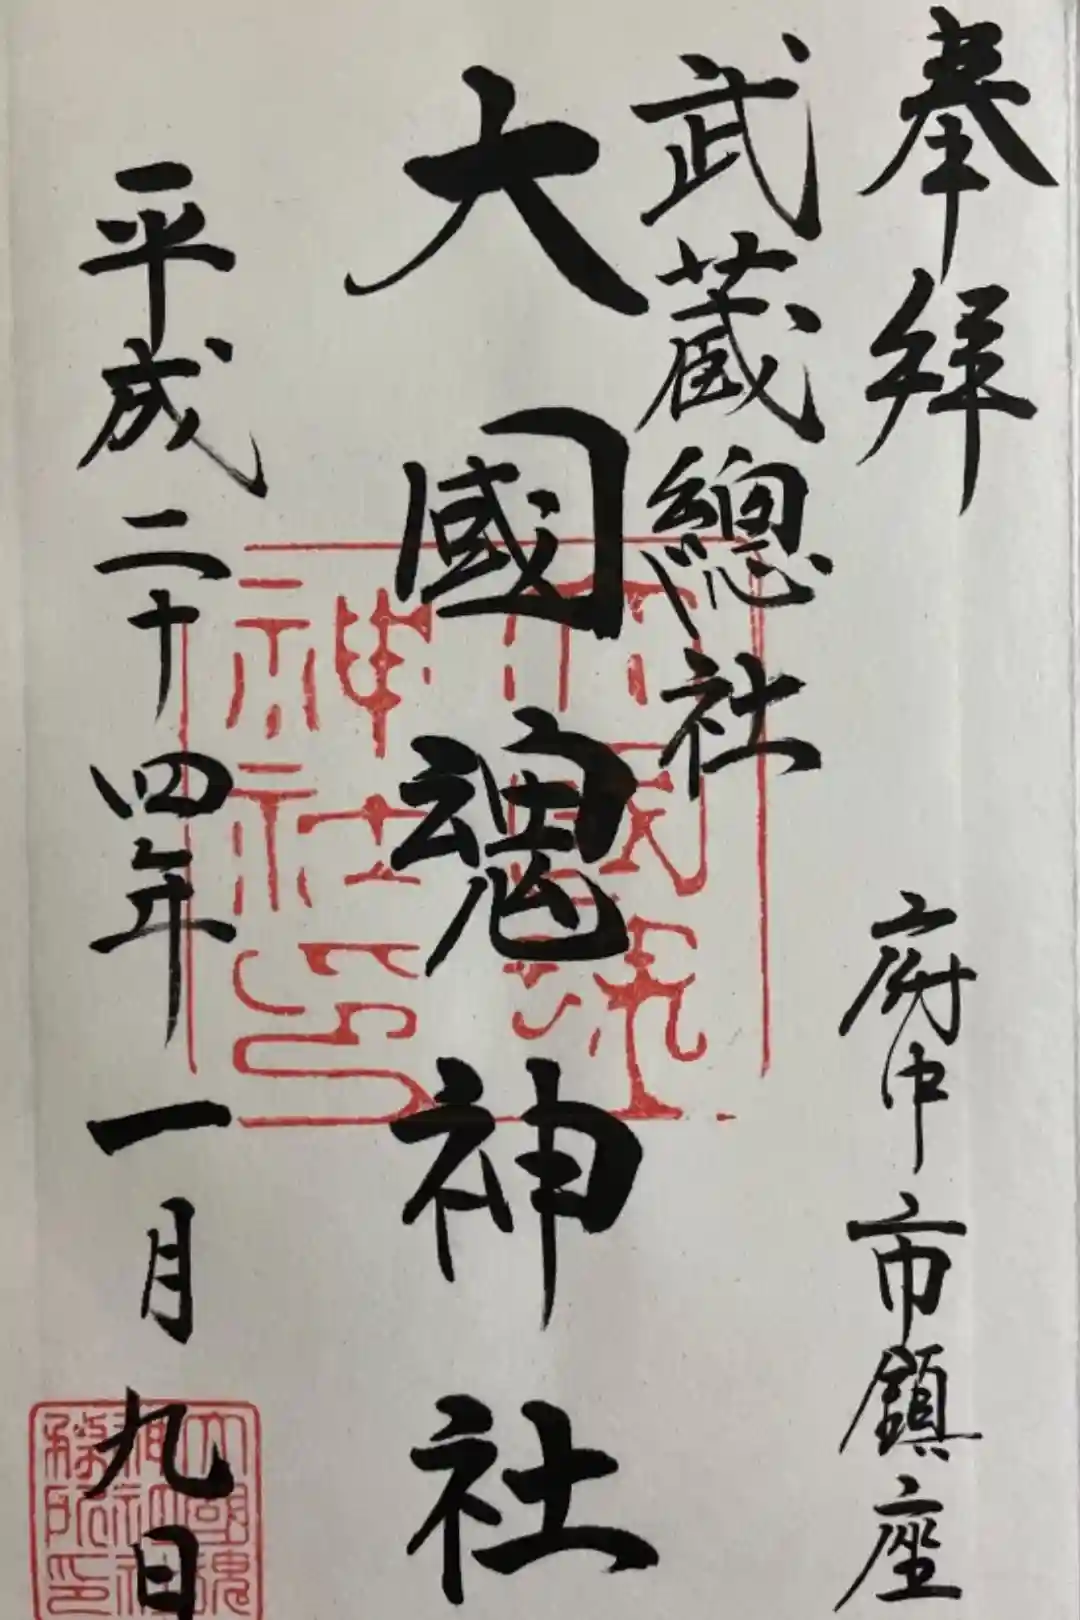 奉拝
府中市鎮座
武蔵總社
大國魂神社
平成二十四年一月九日
大國魂
神社印